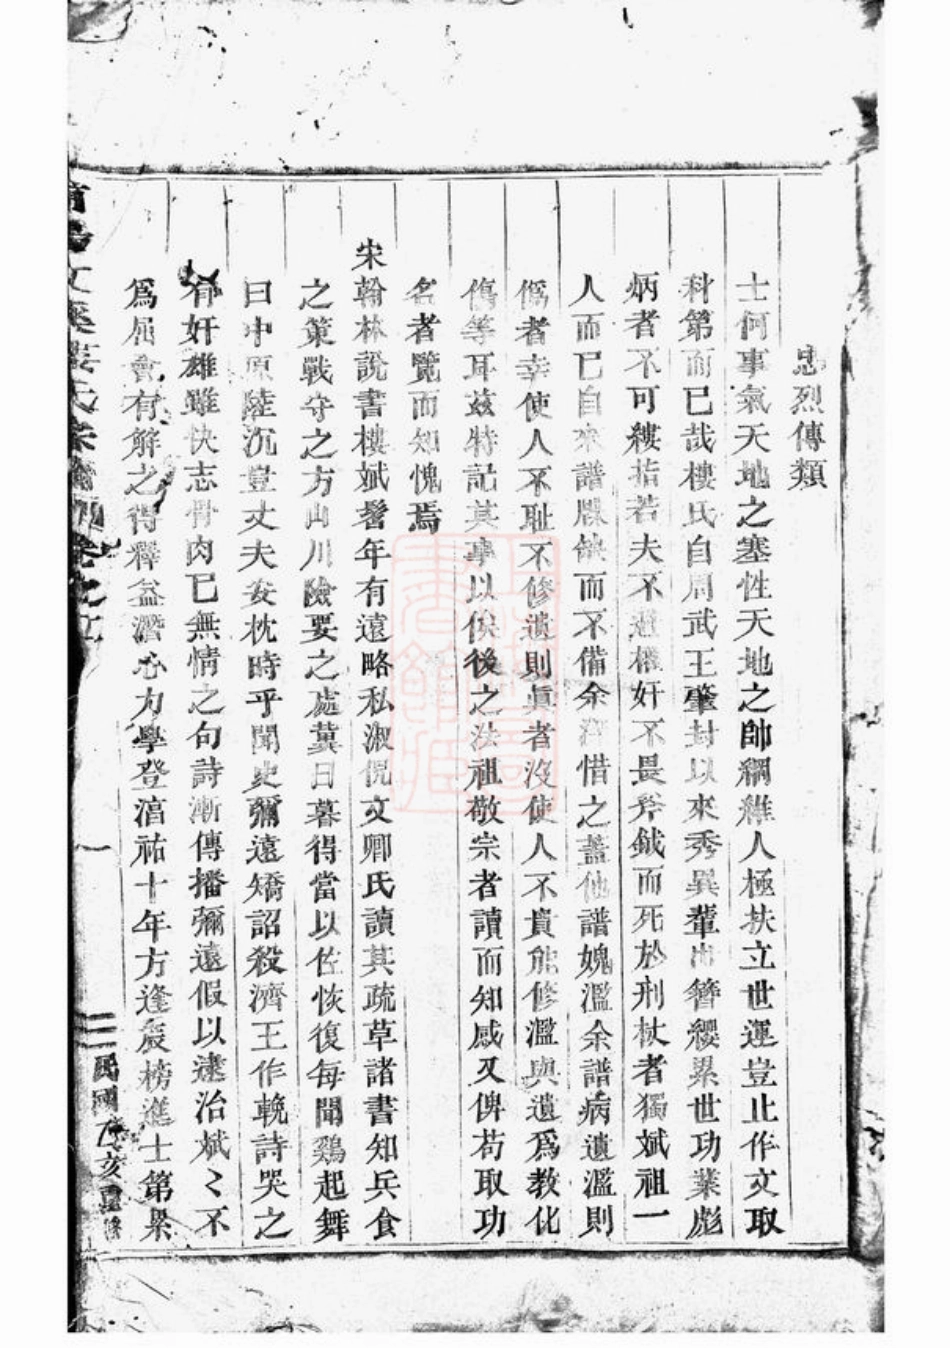 忠烈傳類
士何事氣天地之塞性天地之帥綱維人極扶立世運豈止作文取
科第而已哉樓氏自周武王肇封以來秀異輩出簪纓累世功業彪
炳者不可縷指若夫不避權奸不畏斧鉞而死於刑杖者獨斌祖一
人而已自來譜牒缺而不備余惜之蓋他譜媿濫余譜病遺濫則
僞者幸使人不耻不修遺則眞者沒使人不貴能修濫與遺爲教化
傷等耳茲特記其事以俟後之法祖敬宗者讀而知感又俾苟取功
名者覽而知愧焉
宋翰林說書樓斌髫年有遠略私淑倪文卿氏讀其疏草諸書知兵食
之策戰守之方山川險要之處冀日暮得當以佐恢復每聞鷄起舞
曰中原陸沉豈丈夫安枕時乎聞史彌遠矯詔殺濟王作輓詩哭之
有奸雄雖快志骨肉已無情之句詩漸傳播彌遠假以逮治斌〻不
爲屈會有解之得釋益潛心力學登淳祐十年方逢辰榜進士第累
民國乙亥重修